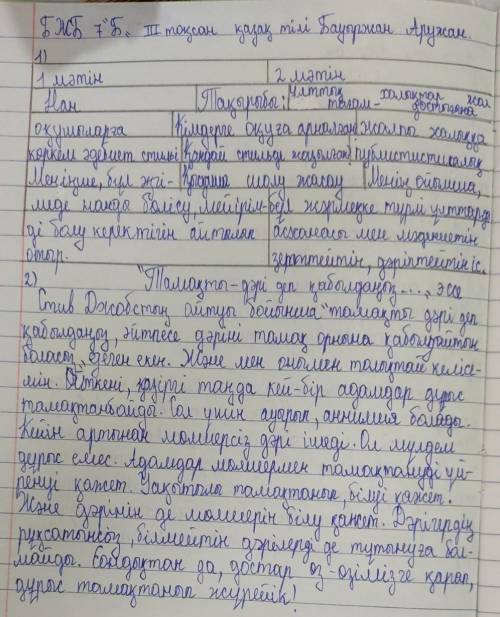 БЖБ 7 "Б" III тоқсан қазақ тілі Бауыржан Аружан.
1)
1 мәтін 2 мәтін
Нан Тақырыбы: Ұлттық тағам- халықтар достығына жол
оқушыларға Кімдерге оқуға арналған Жалпы халыққа
көркем әдебиет стилі Қандай стильде жазылған Публистистикалық
Меніңше, бұл әңгі- шолу жасау Менің ойымша,
меде нанды бөлісу, мейірім- бұл жәрмеңке түрлі ұлттарды
ді болу керектігін айтылып асханасы мен мәдениетін
отыр. зерттейтін, дәріптейтін іс.
2) "Тамақты-дәрі деп қабылдаңыз...." эссе
Стив Джобстың айтуы бойынша "тамақты дәрі деп
қабылдаңыз, әйтпесе дәріні тамақ орнына қабылдайтын
боласыз" деген екен. Және мен онымен толықтай келісе-
мін. Өйткені, қазіргі таңда кей-бір адамдар дұрыс
тамақтанбайды. Сол үшін ауырып, аннимия болады.
Кейін артынан мөлшерсіз дәрі ішеді. Ол мүлдем
дұрыс емес. Адамдар мөлшермен тамақтануды үй-
ренуі қажет. Уақытылы тамақтанып, білуі қажет!
Және дәрінің де мөлшерін білу қажет. Дәрігердің
рұқсатынсыз, білмейтін дәрілерді де тұтынуға бол-
майды. Сондықтан да, достар өз-өзімізге қарап,
дұрыс тамақтанып жүрейік!